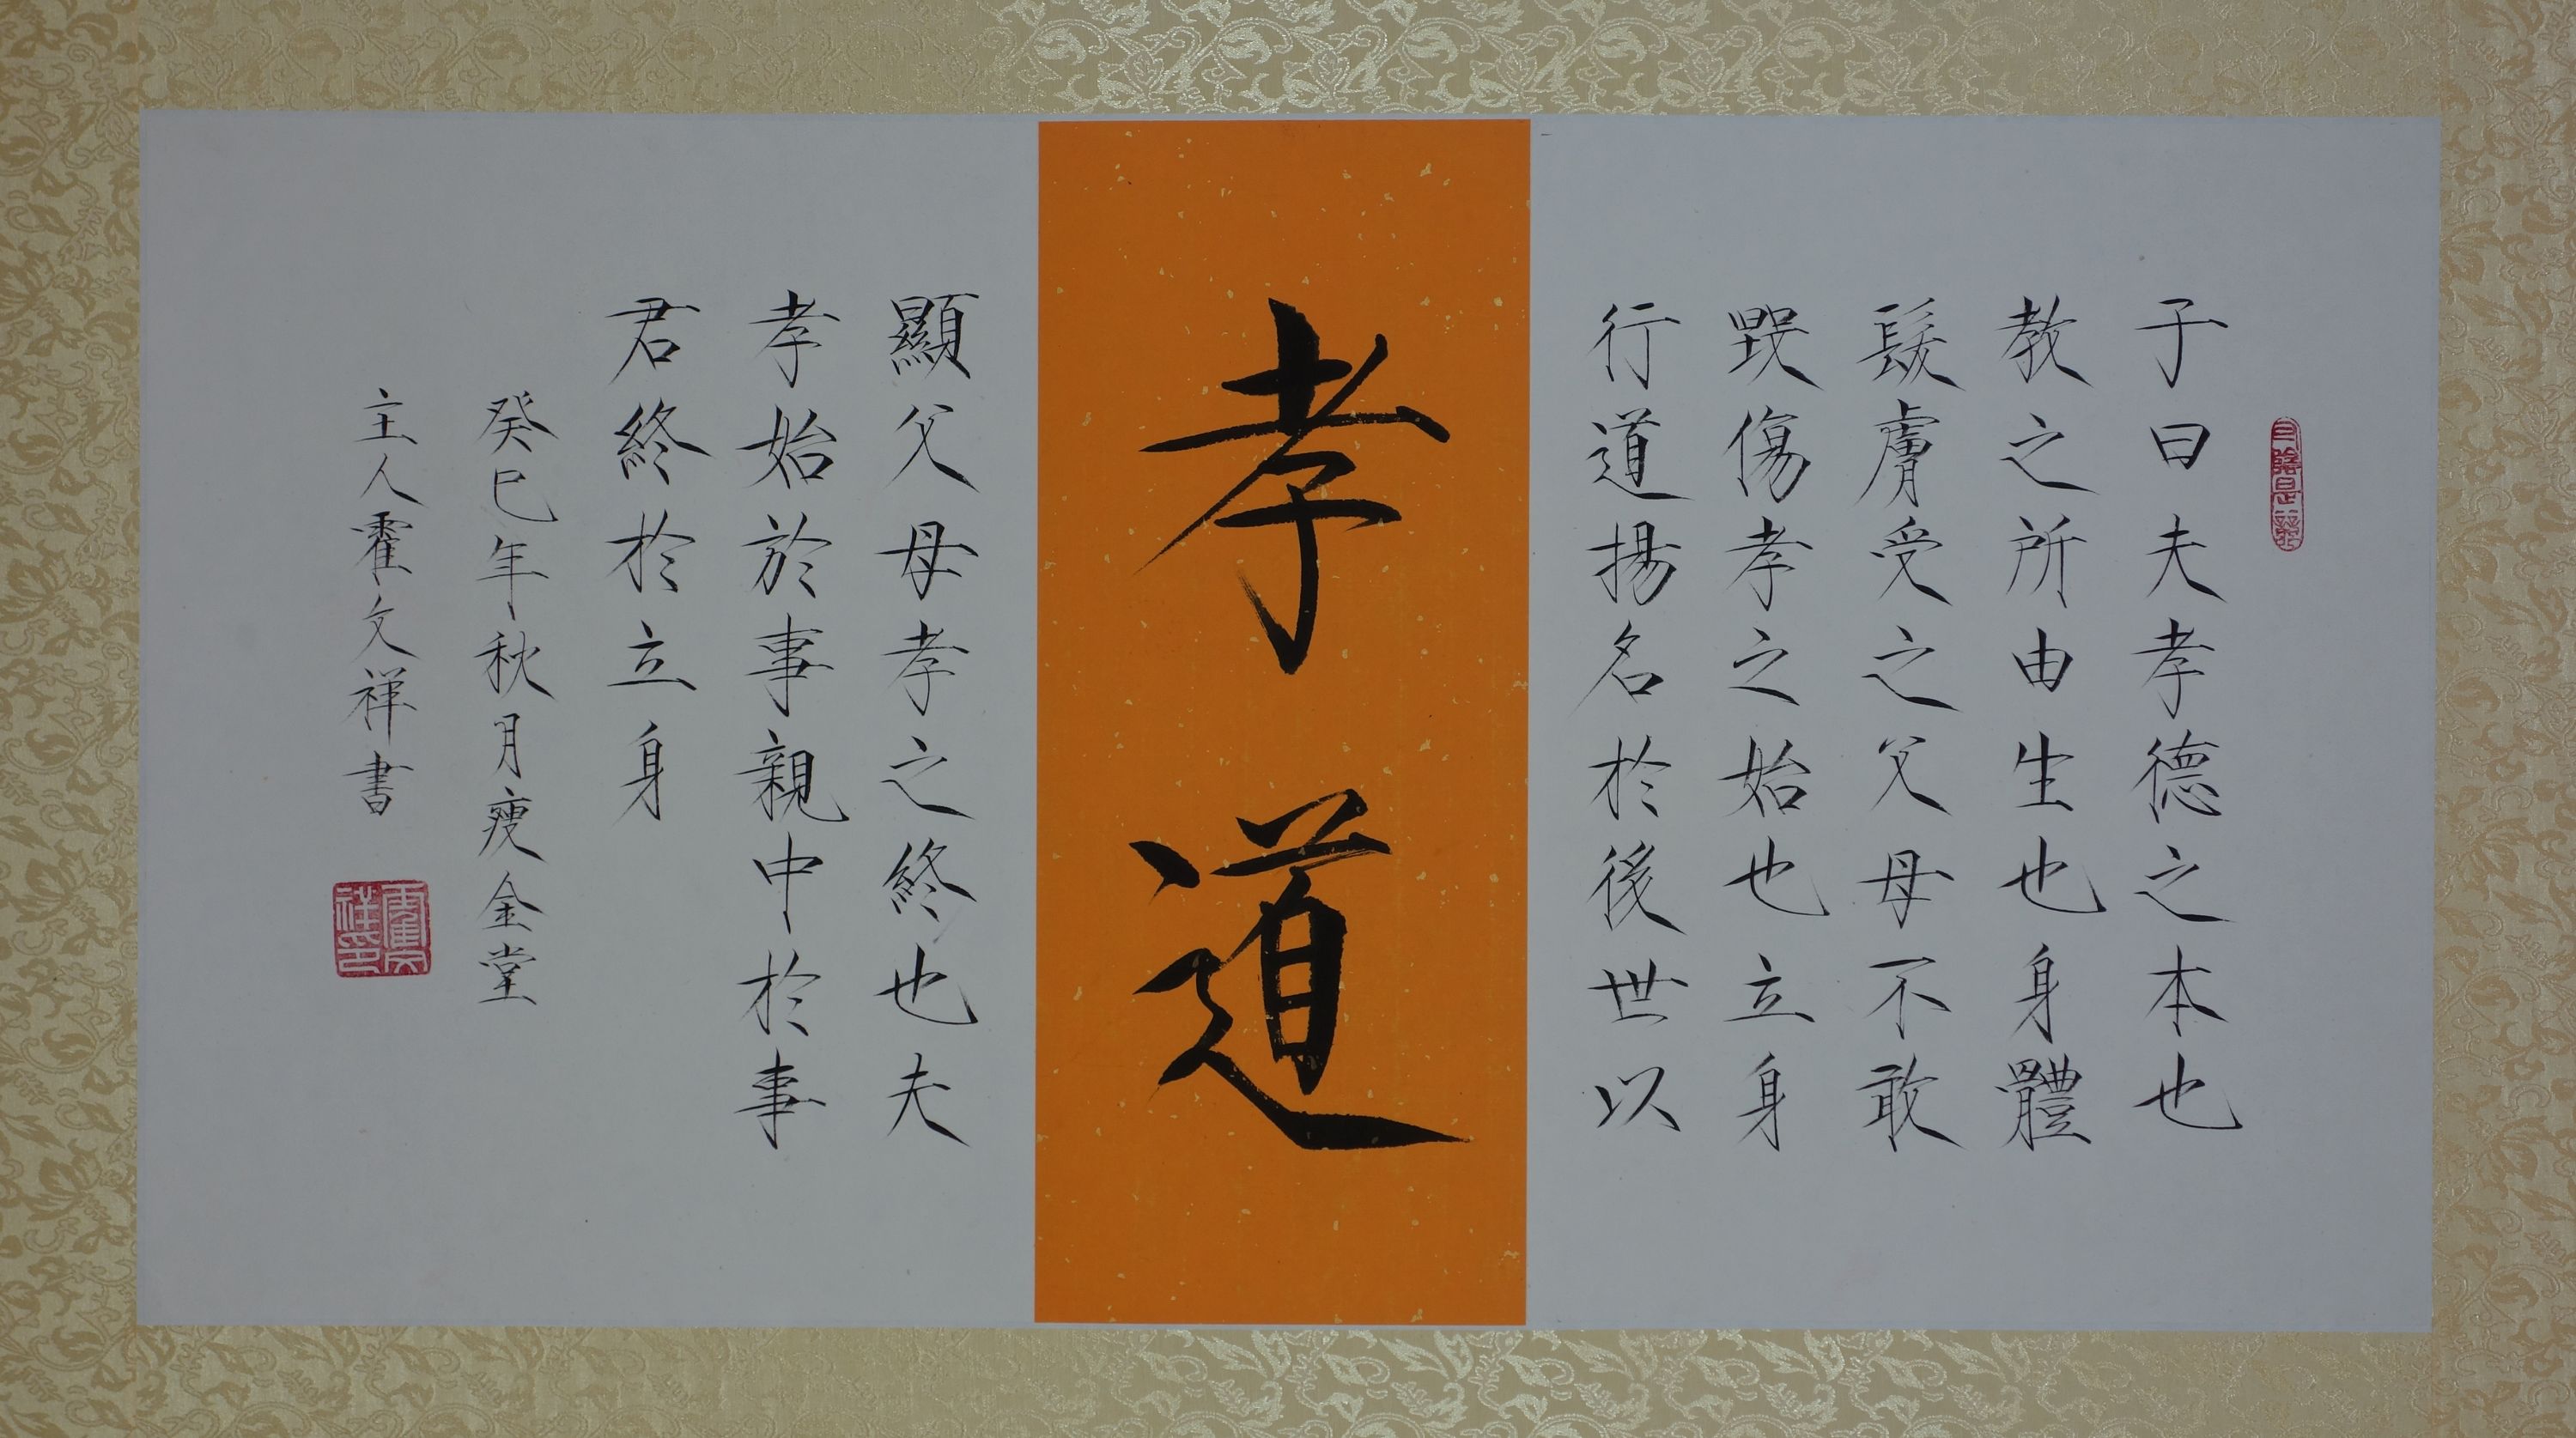 子曰夫孝德之本也
教之所由生也身體
髮膚受之父母不敢
毀傷孝之始也立身
行道揚名於後世以
孝道
顯父母孝之終也夫
孝始於事親中於事
君終於立身
癸巳年秋月瘦金堂
主人霍文祥書
霍文祥印